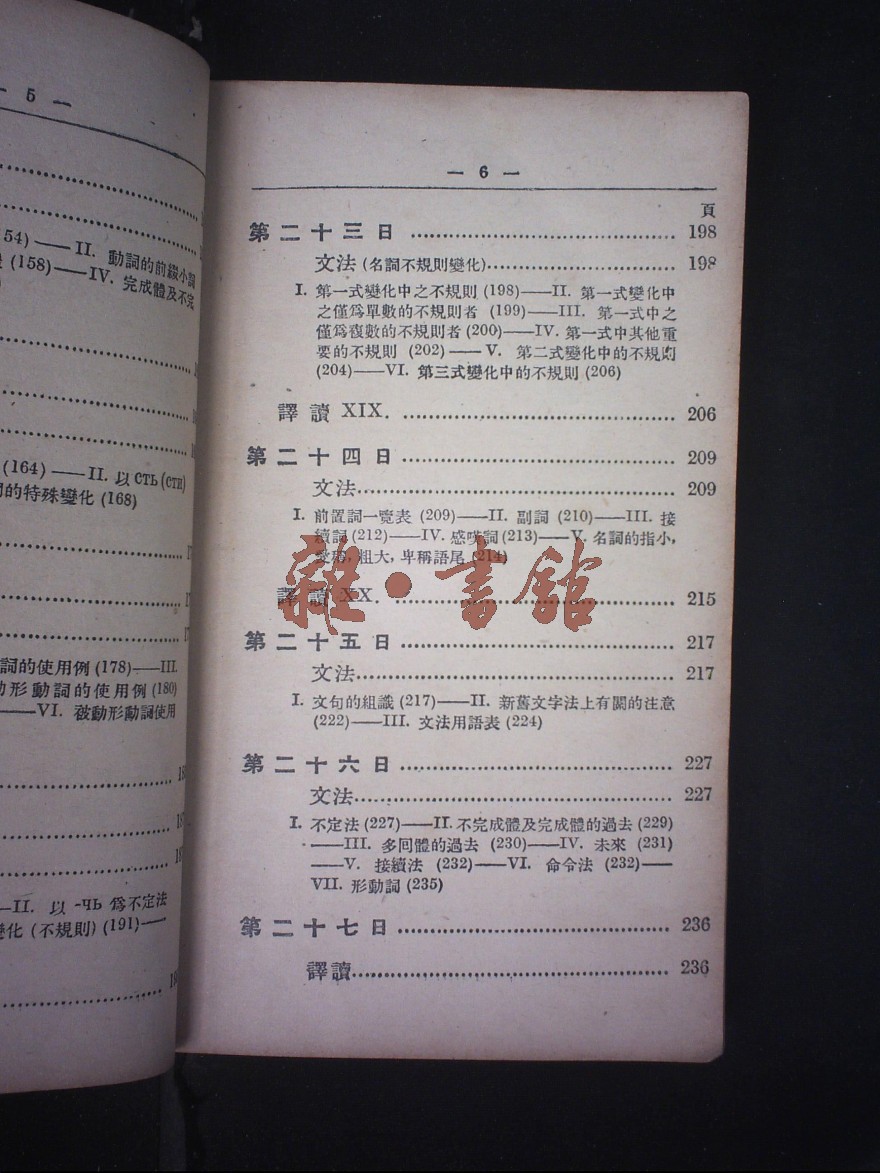 — 5 —
54) —— II. 動詞的前綴小詞
(158)——IV. 完成體及不完
(164) —— II. 以 сть (сти)
的特殊變化 (168)
詞的使用例 (178)——III.
形動詞的使用例 (180)
——VI. 被動形動詞使用
—II. 以 -чь 爲不定法
變化 (不規則) (191)——
— 6 —
頁
第二十三日 ........ 198
文法 (名詞不規則變化) ........ 198
I. 第一式變化中之不規則 (198)——II. 第一式變化中
之僅爲單數的不規則者 (199)——III. 第一式中之
僅爲複數的不規則者 (200)——IV. 第一式中其他重
要的不規則 (202) —— V. 第二式變化中的不規則
(204)——VI. 第三式變化中的不規則 (206)
譯讀 XIX. ........ 206
第二十四日 ........ 209
文法 ........ 209
I. 前置詞一覽表 (209)——II. 副詞 (210)——III. 接
續詞 (212)——IV. 感嘆詞 (213)——V. 名詞的指小,
愛稱, 粗大, 卑稱語尾 (214)
雜·書館
譯讀 XX. ........ 215
第二十五日 ........ 217
文法 ........ 217
I. 文句的組識 (217)——II. 新舊文字法上有關的注意
(222)——III. 文法用語表 (224)
第二十六日 ........ 227
文法 ........ 227
I. 不定法 (227)——II. 不完成體及完成體的過去 (229)
——III. 多回體的過去 (230)——IV. 未來 (231)
——V. 接續法 (232)——VI. 命令法 (232)——
VII. 形動詞 (235)
第二十七日 ........ 236
譯讀 ........ 236